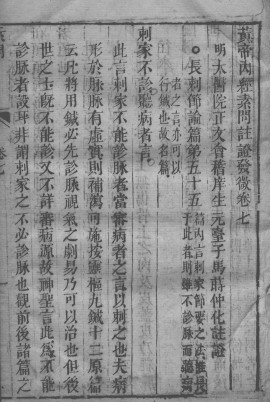 黃帝內經素問註證發微卷七
明太醫院正文會稽庠生元臺子馬蒔仲化註證
○長刺節論篇第五十五篇內言刺家節要之法長於此者則雖不診脈而聽病
者之言亦可以
行鍼也故名篇
刺家不診聽病者言
此言刺家不能診脈者當審病者之言以刺之也夫病
形於脈脈有虛實則補瀉可施按靈樞九鍼十二原篇
云凡將用鍼必先診脈視氣之劇易乃可以治也但後
世之士既不能診又不詳審病源故神聖言此爲不能
診脈者設耳非謂刺家之不必診脈也觀前後諸篇之
卷七